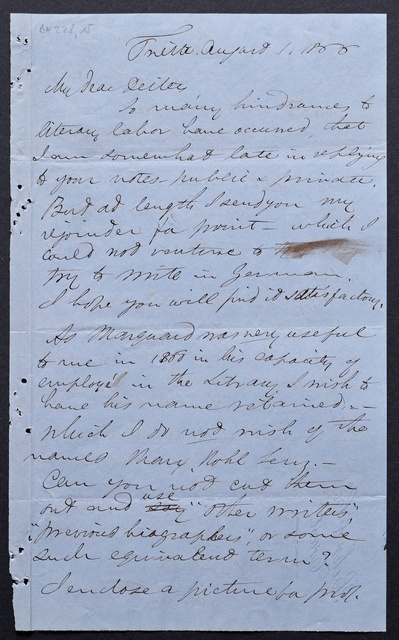 BH 228, 15
Trieste. August 1. 1866
My Dear Deiters
So many hindrances to
literary labor have occurred, that
I am somewhat late in replying
to your notes public & private.
But at length I send you my
rejoinder for print – which I
could not venture to
try to write in German.
I hope you will find it satisfactory.
As Marquard was very useful
to me in 1860 in his capacity of
employé in the Library I wish to
have his name retained. –
which I do not wish of the
names Marx, Nohl Lenz. –
Can you not cut them
out and say use "other writers",
"previous biographers", or some
such equivalent term?
I enclose a picture for Prof.